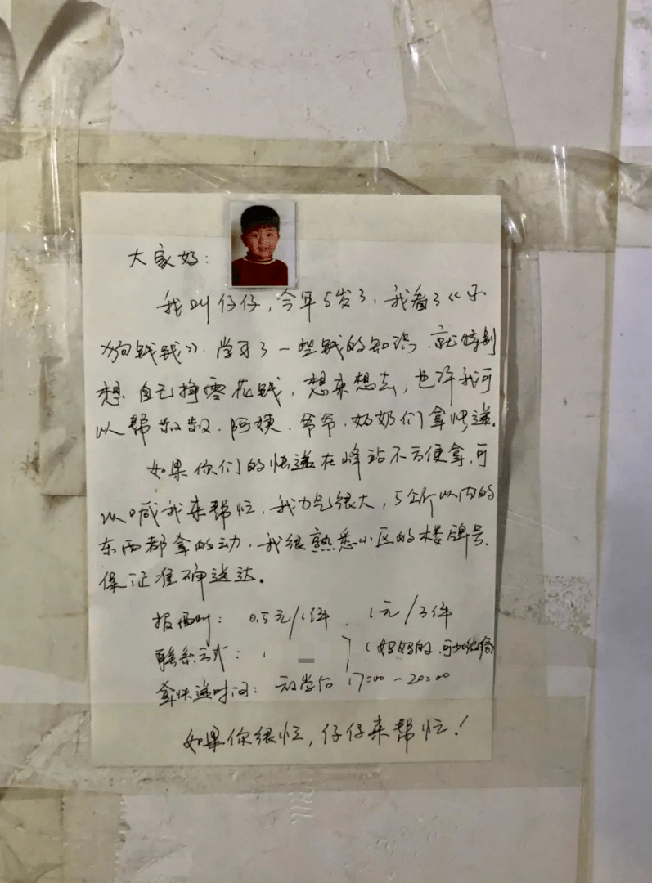 大家好：
我叫仔仔，今年5岁了，我看了《小
狗钱钱》，学习了一些钱的知识，就特别
想自己挣零花钱，想来想去，也许我可
以帮叔叔、阿姨、爷爷、奶奶们拿快递。
如果你们的快递在峰站不方便拿，可
以喊我来帮忙，我力气很大，5公斤以内的
东西都拿的动，我很熟悉小区的楼牌号，
保证准确送达。
报酬： 0.5元/1件、1元/3件
联系方式： （妈妈的，可加微信）
拿快递时间：放学后 17:00-20:00
如果你很忙，仔仔来帮忙！